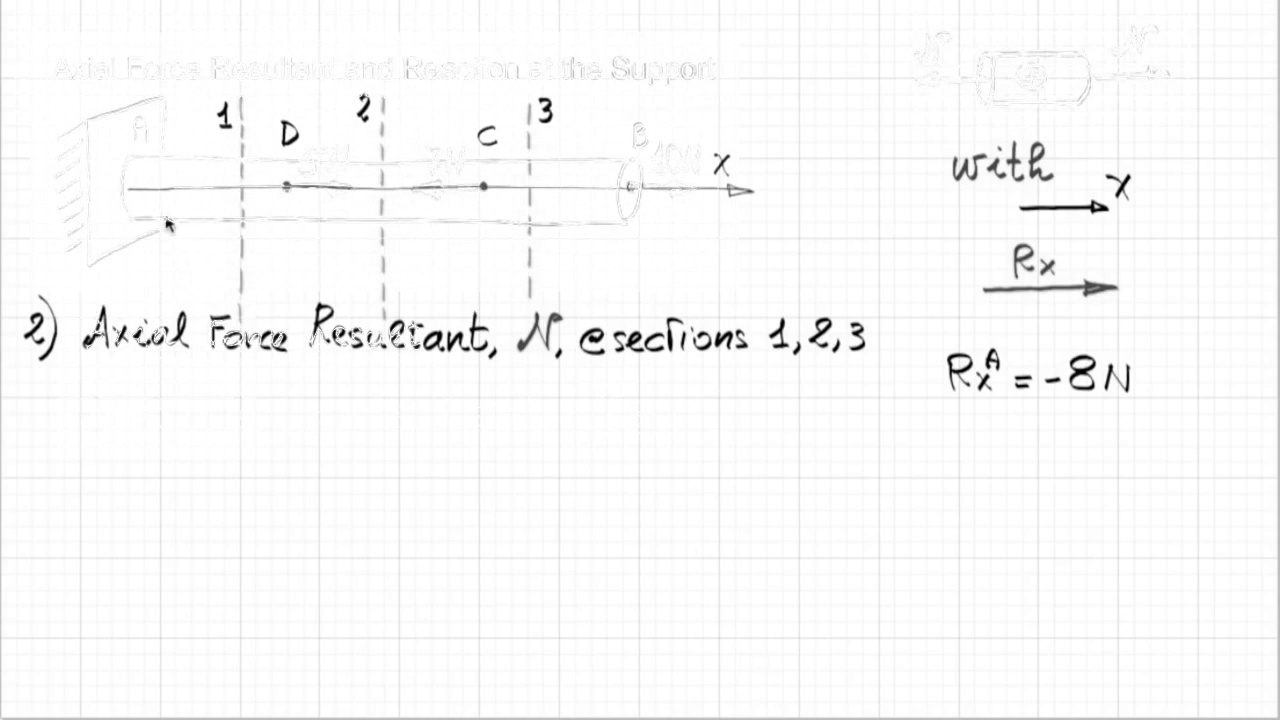 Axial Force Resultant and Reaction at the Support
N N
1 2 3
A D C B
7N 10N x
with x
Rx
2) Axial Force Resultant, N, @ sections 1, 2, 3
RxA = -8N